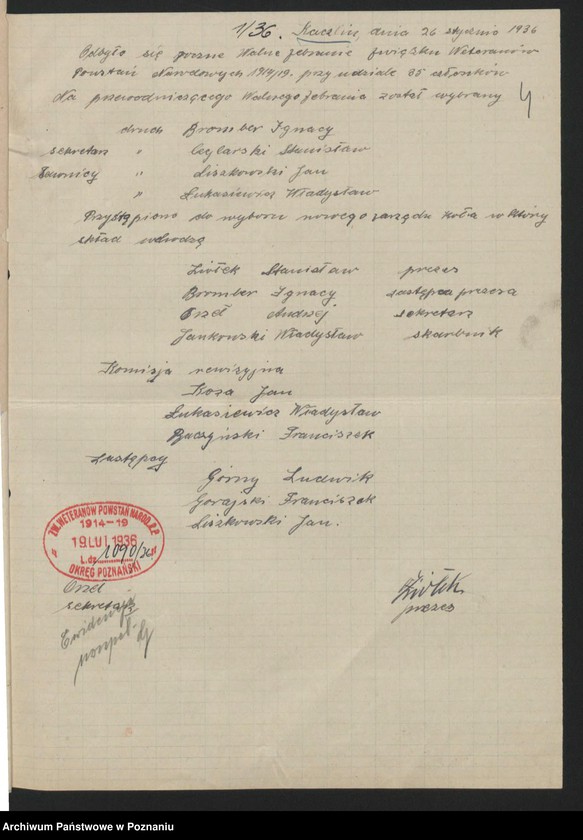 1/36. Kaczlin, dnia 26 stycznia 1936
Odbyło się roczne Walne Zebranie Związku Weteranów
Powstań Narodowych 1914/19. przy udziale 35 członków
Na przewodniczącego Walnego Zebrania został wybrany
druch Bromber Ignacy
sekretarz " Ceglarski Stanisław
Ławnicy " Liszkowski Jan
" Łukasiewicz Władysław
Przystąpiono do wyboru nowego zarządu koła w który
skład wchodzą
Ziółek Stanisław prezes
Bormber Ignacy zastępca prezesa
Orzeł Andrzej sekretarz
Jankowski Władysław skarbnik
Komisja rewizyjna
Koza Jan
Łukasiewicz Władysław
Buczyński Franciszek
Zastępcy
Górny Ludwik
Gorajski Franciszek
Liszkowski Jan.
ZW. WETERANÓW POWSTAŃ NAROD. R.P.
1914-19
19 LUT 1936
L.dz. 1090/36
OKRĘG POZNAŃSKI
Orzeł
sekretarz
Ziółek
prezes
Ewidencja
Archiwum Państwowe w Poznaniu